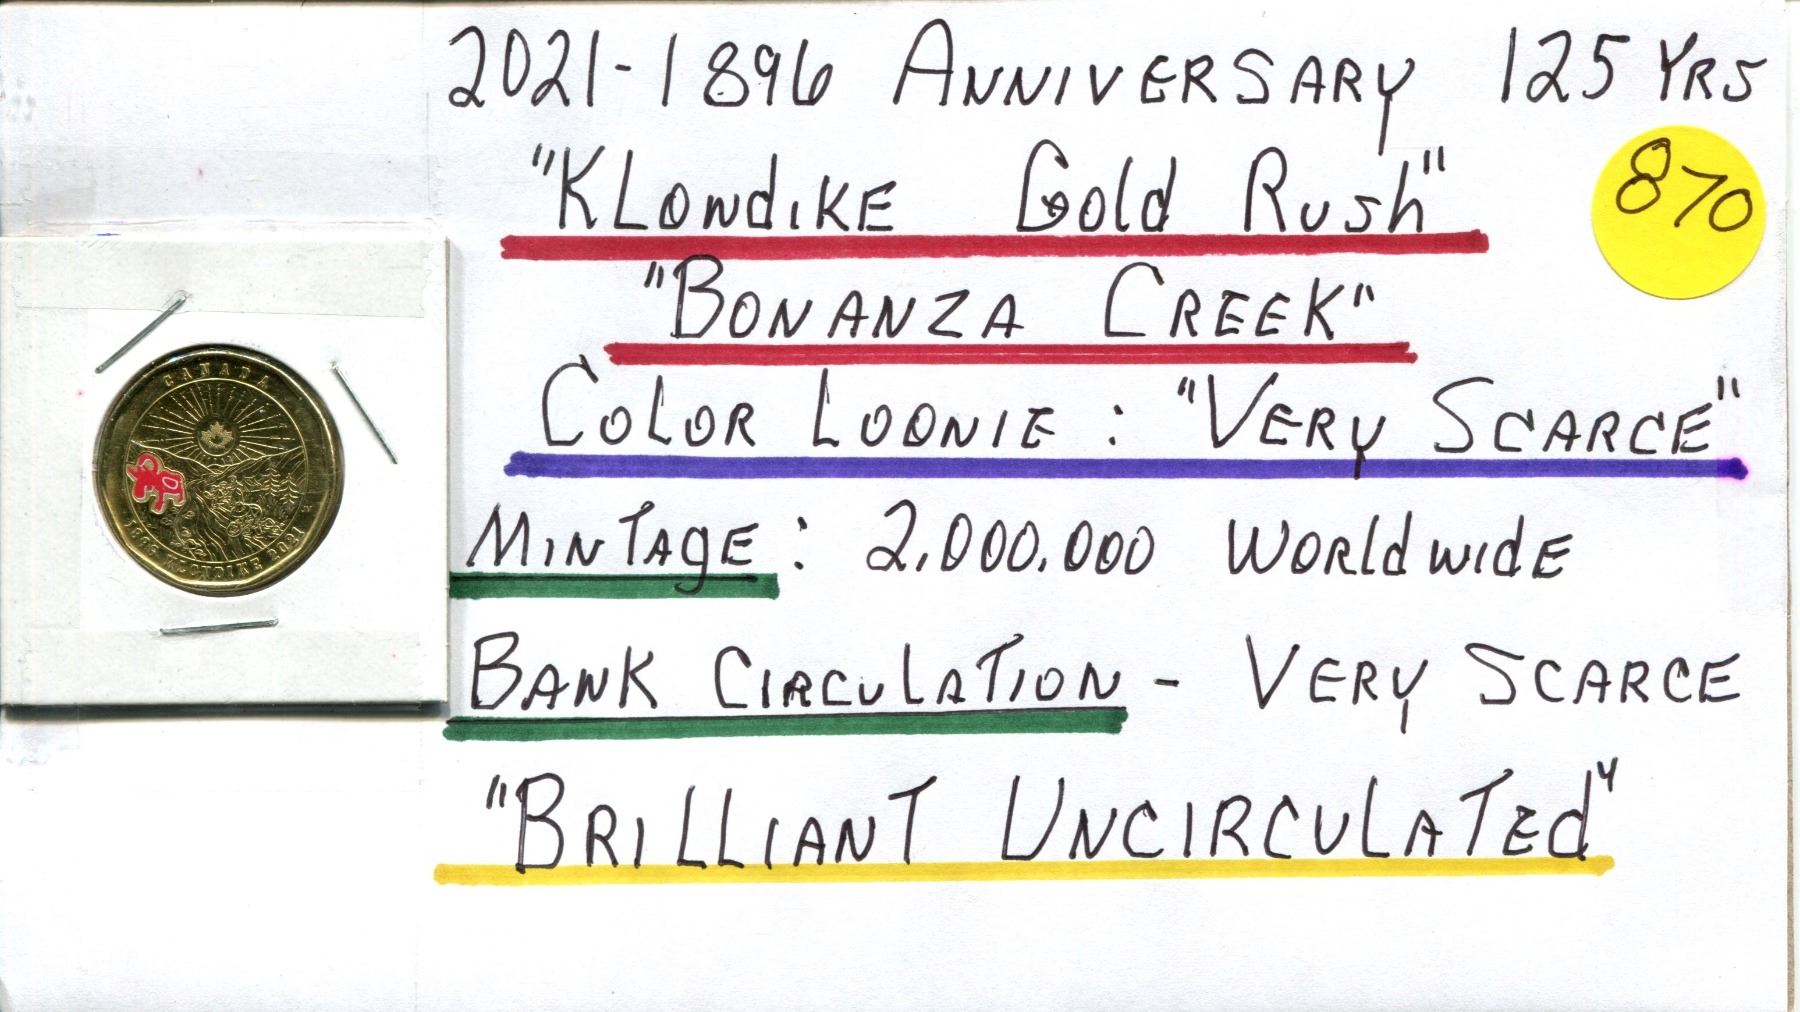 2021-1896 ANNIVERSARY 125 YRS
"KLONDIKE Gold Rush"
870
"BONANZA CREEK"
COLOR LOONIE : "VERY SCARCE"
MINTAGE : 2,000,000 WORLDWIDE
BANK CIRCULATION - VERY SCARCE
"BRILLIANT UNCIRCULATED"
CANADA
1896 KLONDIKE 2021